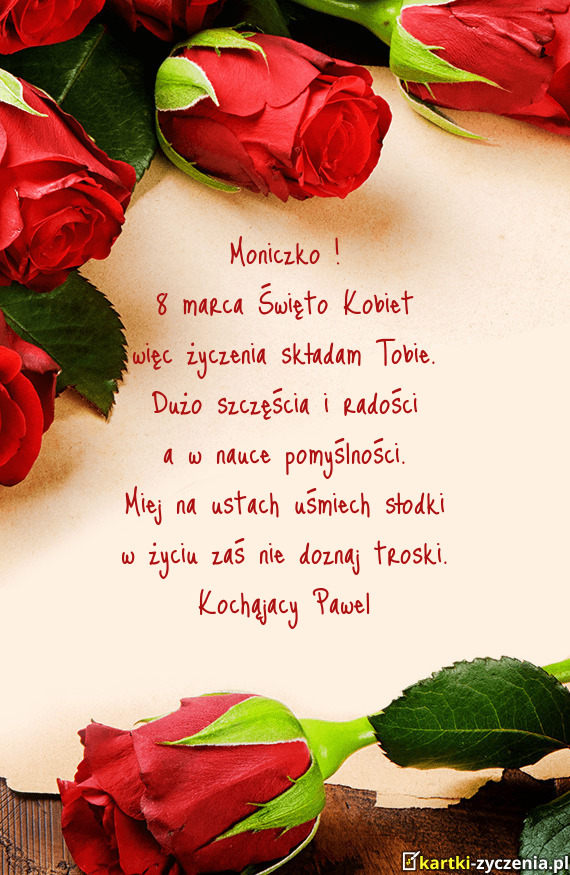 Moniczko !
8 marca Święto Kobiet
więc życzenia składam Tobie.
Dużo szczęścia i radości
a w nauce pomyślności.
Miej na ustach uśmiech słodki
w życiu zaś nie doznaj troski.
Kochąjacy Pawel
kartki-zyczenia.pl